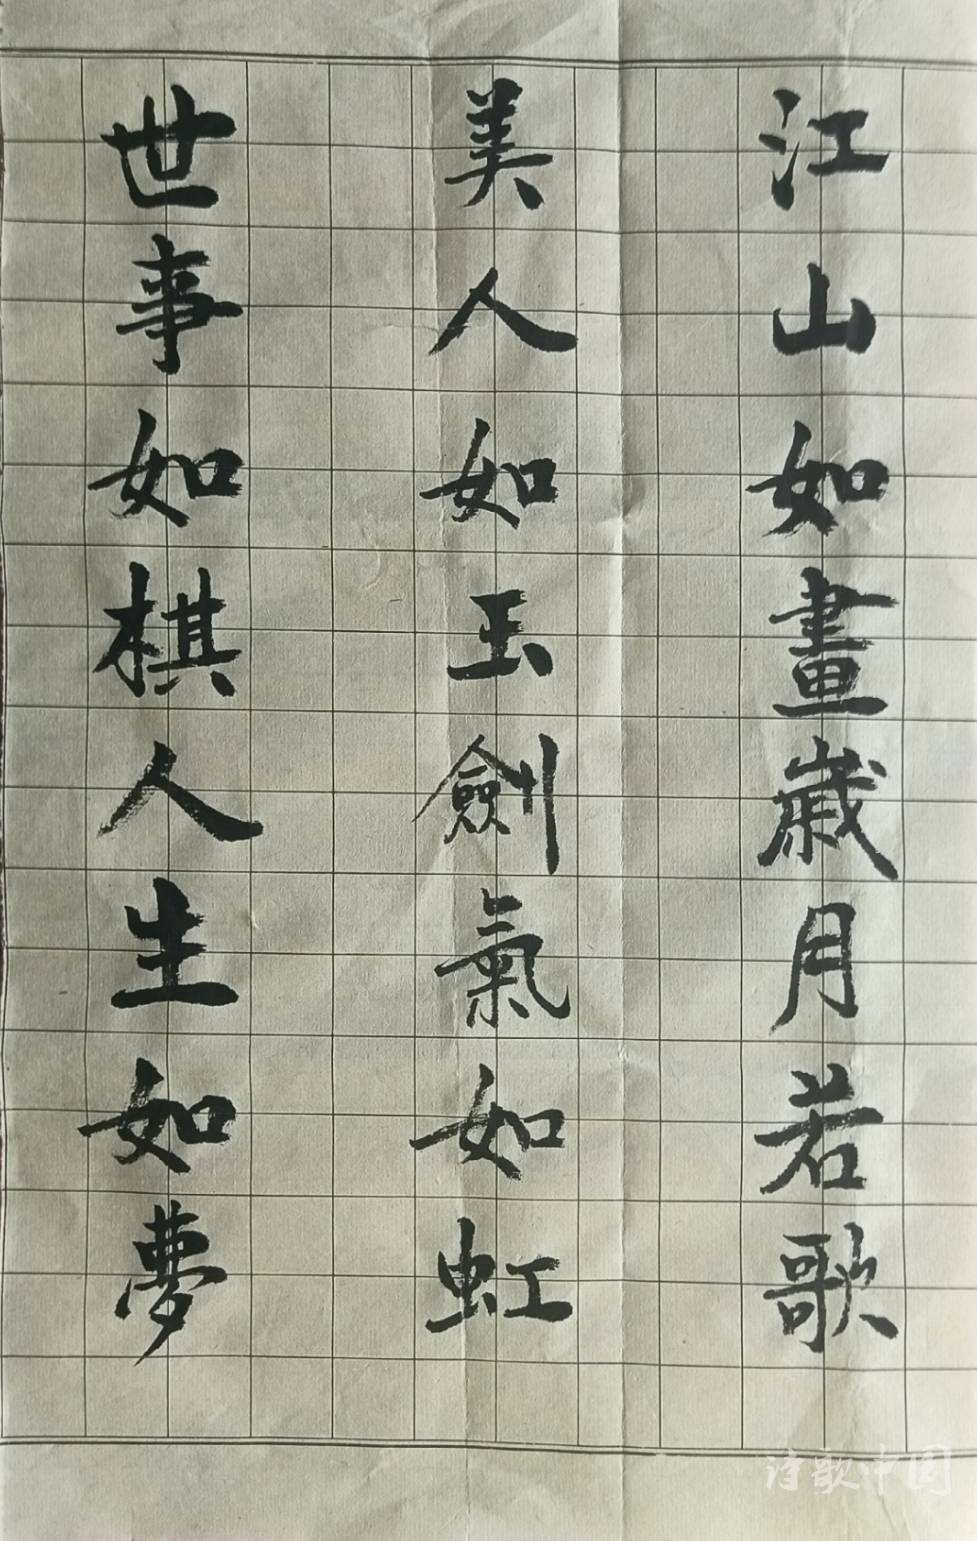 江山如畫歲月若歌
美人如玉劍氣如虹
世事如棋人生如夢
诗歌中国